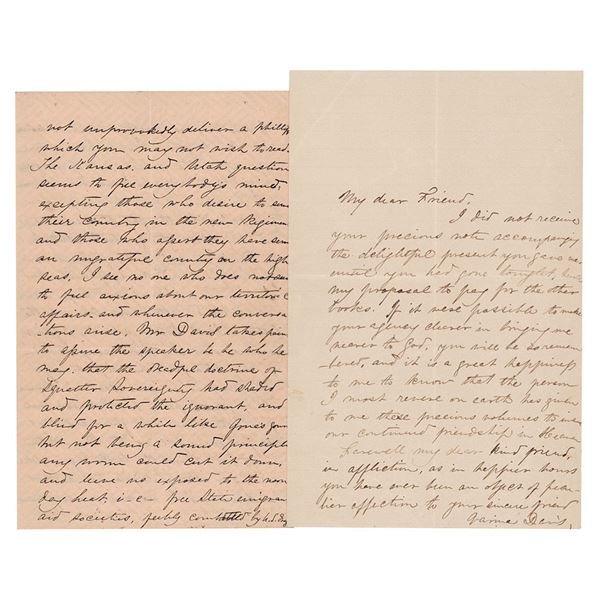 not unprovokedly deliver a philip
which you may not wish to read.
The Kansas, and Utah question
seems to fill everybody's mind,
excepting those who desire to
their country in the new Regimen
and those who assert they have
an ungrateful country on the high
seas, I see no one who does not
to feel anxious about our territorial
affairs, and whenever the conversa
-tions arise, Mr Davis takes pains
to assure the speaker be he who he
may, that the dreadful doctrine of
Squatter Sovereignty had shaded
and protected the ignorant, and
blind for a while like gourd
but not being a sound principle
any worm could cut it down,
and leave us exposed to the noon
day heat, i-e- free State emigran
aid societies, feebly combatted by U.S.
My dear Friend,
I did not receive
your precious note accompanying
the delightful present you gave me
until you had gone tonight, hence
my proposal to pay for the other
books. If it were possible to make
your agency clearer in bringing me
nearer to God, you will be so remem
-bered, and it is a great happiness
to me to know that the person
I most revere on earth has given
to me these precious volumes to
our continued friendship in Heaven
Farewell my dear kind friend,
in affliction, as in happier hours
you have ever been an object of pecu-
lier affection to your sincere friend
Varina Davis